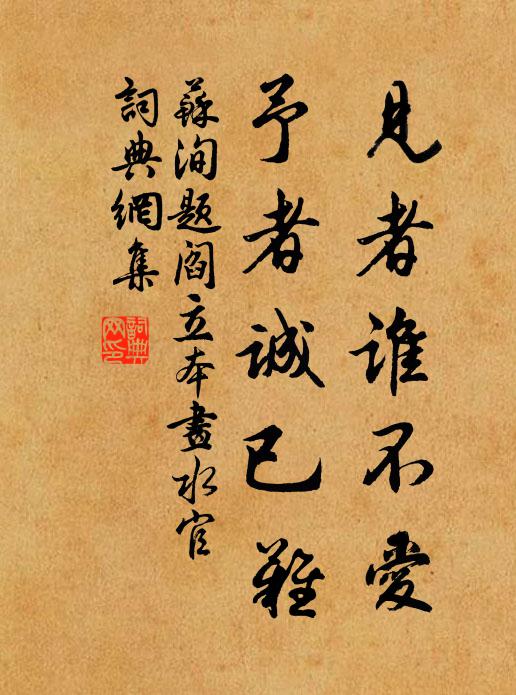 見者誰不愛
予者誠已難
蘇洵題閻立本畫水官
詞典網集
詞典网印